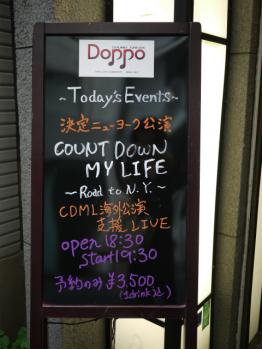 Doppo
~Today's Events~
決定ニューヨーク公演
COUNT DOWN
MY LIFE
~Road to N.Y.~
CDML海外公演
支援LIVE
open 18:30
start 19:30
予約のみ ¥3,500
(1drink込)